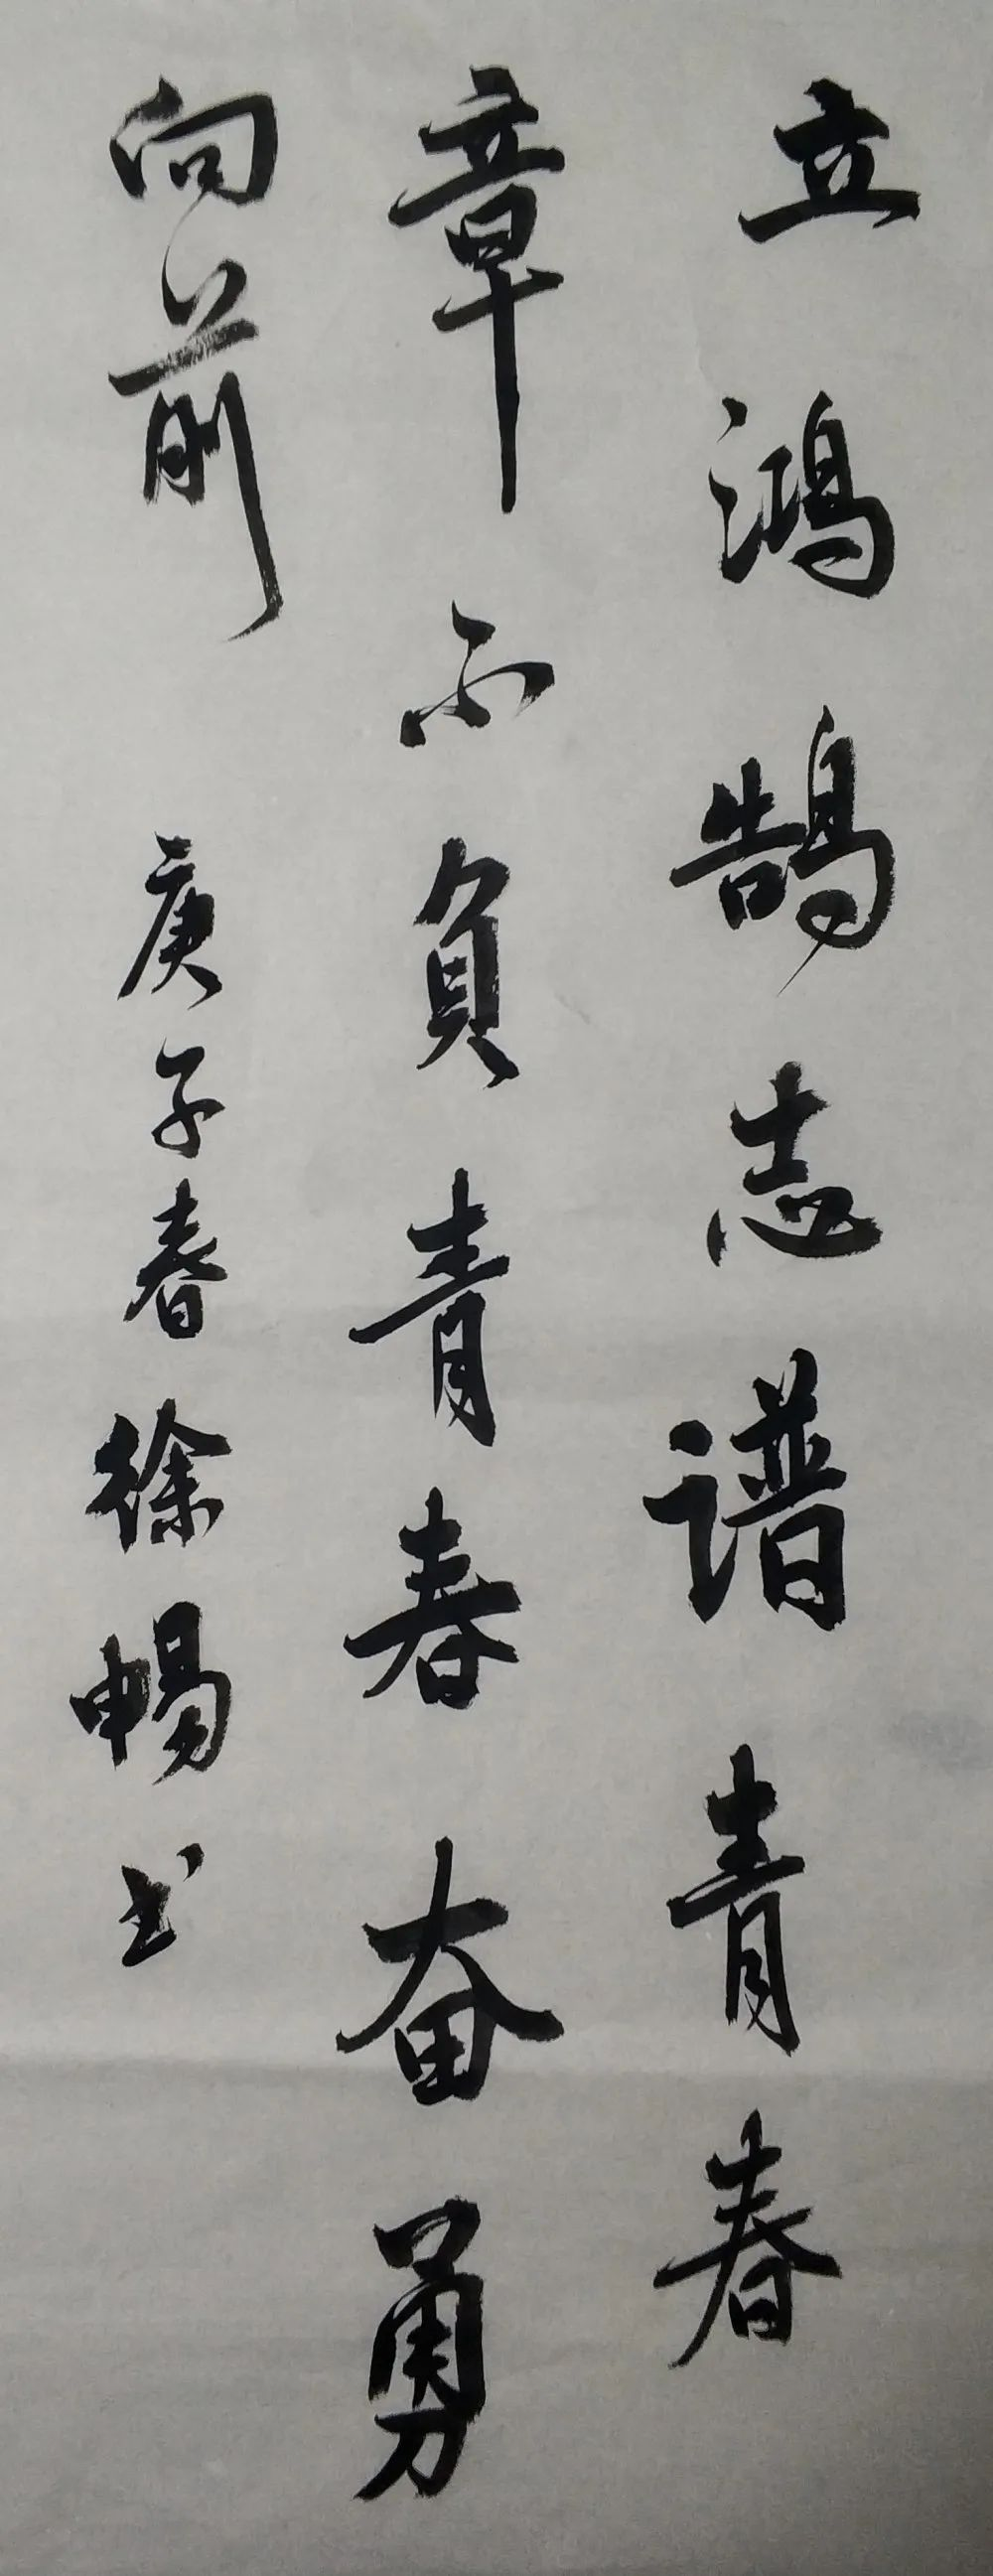 立鸿鹄志谱青春
章不负青春奋勇
向前 庚子春徐畅书